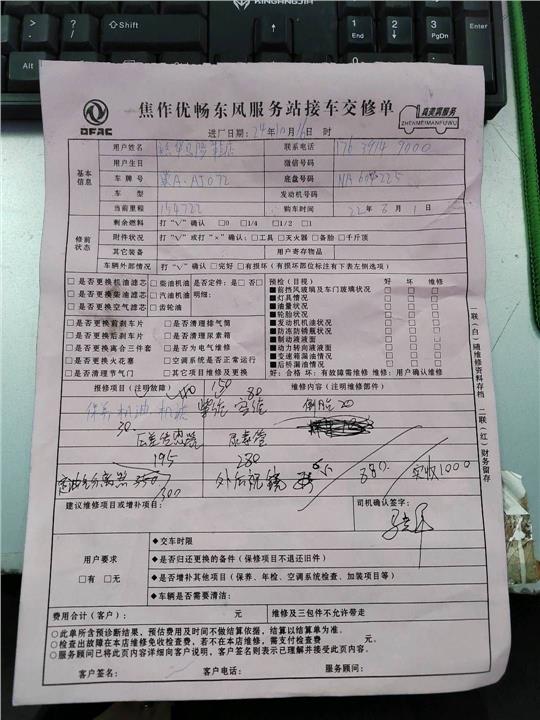 焦作优畅东风服务站接车交修单
DFAC
真美满服务
ZHENMEIMANFUWU
进厂日期：24年10月16日 时
用户姓名 联系电话 176 3914 9000
用户生日 微信号码
基本信息
车牌号 底盘号码
车 型 发动机号码
当前里程 154722 购车时间 22年6月1日
修前状态
剩余燃料 打“√”确认 □0 □1/4 □1/2 □1
附件状况 打“√”或打“×”确认：□工具 □灭火器 □备胎 □千斤顶
其它装备 用户寄存物品
车辆外部情况 打“√”确认 □完好 □有损坏（有损坏部位标注有下表左侧选项）
□是否更换机油滤芯 □柴油机油 是否定件：□是 □否
□是否更换柴油滤芯 □汽油机油 明细：
□是否更换空气滤芯 □齿轮油
□是否更换前刹车片 □是否清理排气筒
□是否更换后刹车片 □是否清理尿素箱
□是否更换离合三件套 □是否为电气维修
□是否更换火花塞 □空调系统是否正常运行
□是否清理节气门 □其它项目维修及更换
预检（目视） 好 坏 维修
■前挡风玻璃及车门玻璃状况 □ □ □
■灯具情况 □ □ □
■油量状况 □ □ □
■轮胎状况 □ □ □
■发动机机油状况 □ □ □
■防冻防锈瓶状况 □ □ □
■制动液液面 □ □ □
■动力转向液液面 □ □ □
■变速箱漏油情况 □ □ □
■后桥漏油情况 □ □ □
好：合格 坏：有故障需维修 维修：用户确认维修
报修项目（注明故障） 维修内容（注明维修部件）
150 80
保养 机油 机滤 柴滤 空滤 倒胎20
30
压差传感器 尿素管
195 280
油气分离器 350 外后视镜 880 实收1000
300
建议维修项目或增补项目： 司机确认签字：
用户要求
□有 □无
◆交车时限
◆是否归还更换的备件（保修项目不退还旧件）
◆是否增补其他项目（保养、年检、空调系统检查、加装项目等）
◆车辆是否需要清洁：
费用合计（客户）： 元 维修及三包件不允许带走
○此单所含预诊断结果，预估费用及时间不做结算依据，结算以结算单为准。
○检查出故障在本店维修免收检查费，若不在本店维修，需支付检查费 元。
○服务顾问已将此页内容详细向客户说明，客户签名则表示已理解并接受此页内容。
客户签名： 客户电话： 服务顾问：
一联（白）随维修资料存档 二联（红）财务留存
KINGANGJIA
Alt
Ctrl
1 End
2
3 PgDn
0
Enter